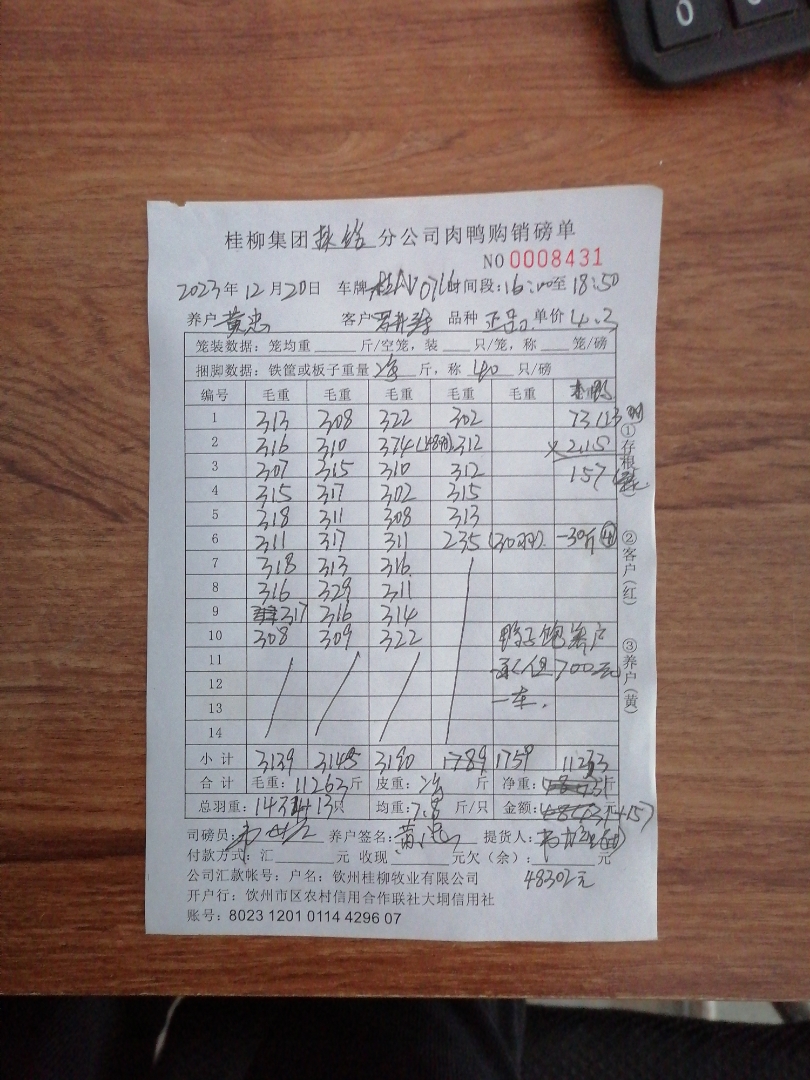 桂柳集团 分公司肉鸭购销磅单
NO 0008431
2023年12月20日 车牌 时间段:16:00至18:50
养户 黄忠 客户 品种 正品 单价 4.3
笼装数据：笼均重 斤/空笼，装 只/笼，称 笼/磅
捆脚数据：铁筐或板子重量 净 斤，称 40 只/磅
编号 毛重 毛重 毛重 毛重 毛重
1 313 308 322 302 73/13羽
2 316 310 374(48羽) 312 ×2.15
3 307 315 310 312 157
4 315 317 302 315
5 318 311 308 313
6 311 317 311 235 (30羽) -30斤
7 318 313 316
8 316 329 311
9 317 316 314
10 308 309 322 鸭子 客户
11 700元
12 一车.
13
14
小计 3139 3145 3190 1789 1759 11233
合计 毛重：11263斤 皮重：净 斤 净重： 斤
总羽重： 13只 均重：7.8 斤/只 金额： +157
司磅员： 养户签名： 提货人：
付款方式：汇 元 收现 元欠（余）： 元
公司汇款帐号：户名：钦州桂柳牧业有限公司 48302元
开户行：钦州市区农村信用合作联社大垌信用社
账号：8023 1201 0114 4296 07
①存根
②客户（红）
③养户（黄）
0